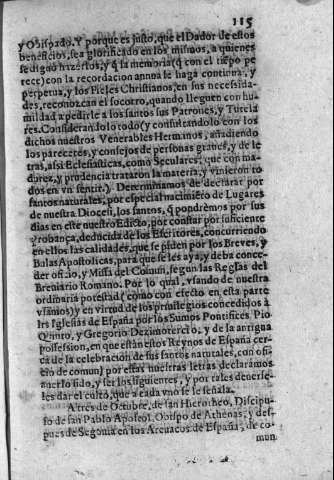 115
y Obispado. Y porque es justo, que el Dador de estos
beneficios, sea glorificado en los mismos, a quienes
se dignò hazerlos, y q̃ la memoria (q̃ con el tiẽpo pe
rece) con la recordacion annua le haga continua, y
perpetua, y los Fieles Christianos, en sus necessida-
des, reconozcan el socorro, quando lleguen con hu-
mildad a pedirle a los santos sus Patrones, y Tutela
res. Considerandolo todo (y consultandolo con los
dichos nuestros Venerables Hermanos, añadiendo
los pareceres, y consejos de personas graues, y de le
tras, assi Eclesiasticas, como Seculares, que con ma-
durez, y prudencia trataron la materia, y vinieron to
dos en vn sentir.) Determinamos de declarar por
santos naturales, por especial nacimiẽto de Lugares
de nuestra Diocesi, los santos, q̃ pondrèmos por sus
dias en este nuestro Edicto, por constar por suficiente
probança, deducida de los Escritores, concurriendo
en ellos las calidades, que se piden por los Breves, y
Bulas Apostolicas, para que se les aya, y deba conce-
der oficio, y Missa del Comun, segun las Reglas del
Breuiario Romano. Por lo qual, vsando de nuestra
ordinaria potestad (como con efecto en esta parte
vsamos) y en virtud de los priuilegios concedidos à
las Iglesias de España por los Sumos Pontifices Pio
Quinto, y Gregorio Dezimotercio, y de la antigua
possession, en que estàn estos Reynos de España cer-
ca de la celebracion de sus santos naturales, con ofi
cio de comun) por estas nuestras letras declaramos
auerlo sido, y ser los siguientes, y por tales deuerse-
les dar el culto, que a cada vno se le señala.
A tres de Octubre, de san Hieroteo, Discipu-
lo de san Pablo Apostol, Obispo de Athenas, y des-
pues de Segouia en los Areuacos de España, de co-
mun